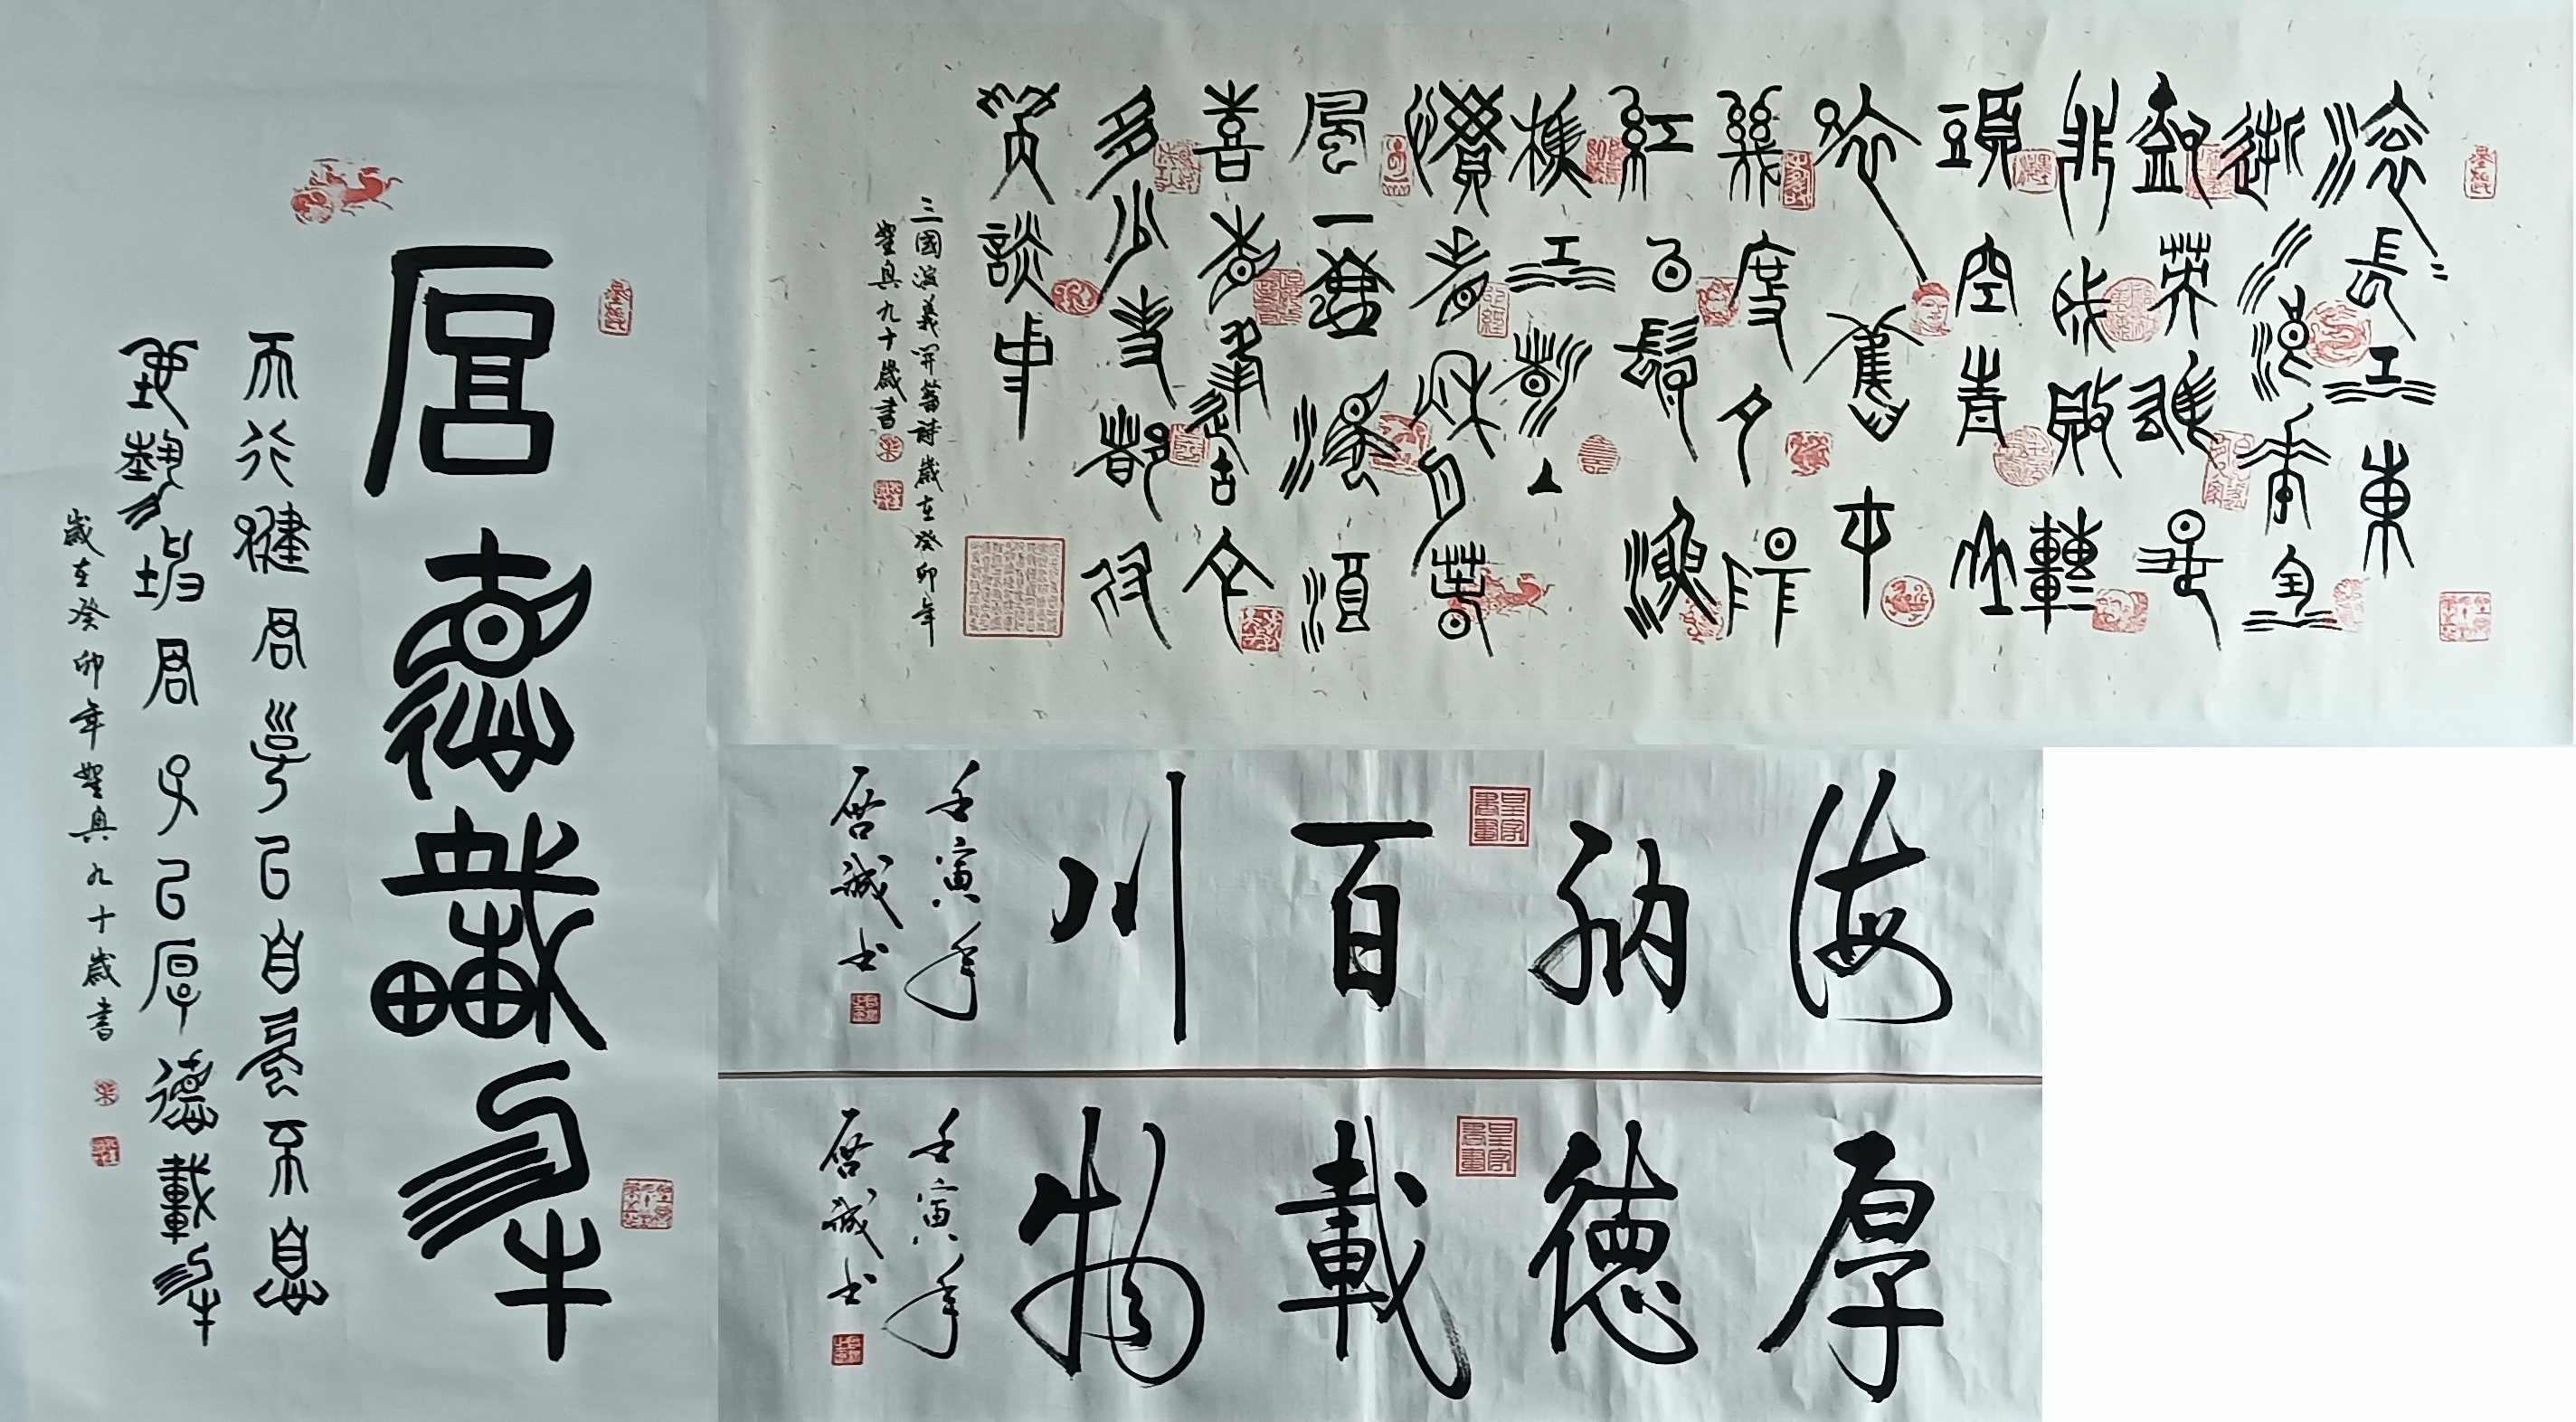 厚德載物
天行健君子以自强不息
地勢坤君子以厚德載物
歲在癸卯年 九十歲書
滾〻長江東
逝水浪花淘
盡英雄是
非成敗轉
頭空青山
依舊在
幾度夕陽
紅白髮漁
樵江渚上
慣看秋月春
風一壺濁酒
喜相逢古今
多少事都付
笑談中
三國演義開篇詩歲在癸卯年
九十歲書
海納百川
壬寅年
啟誠书
皇家書畫
厚德載物
壬寅年
啟誠书
皇家書畫